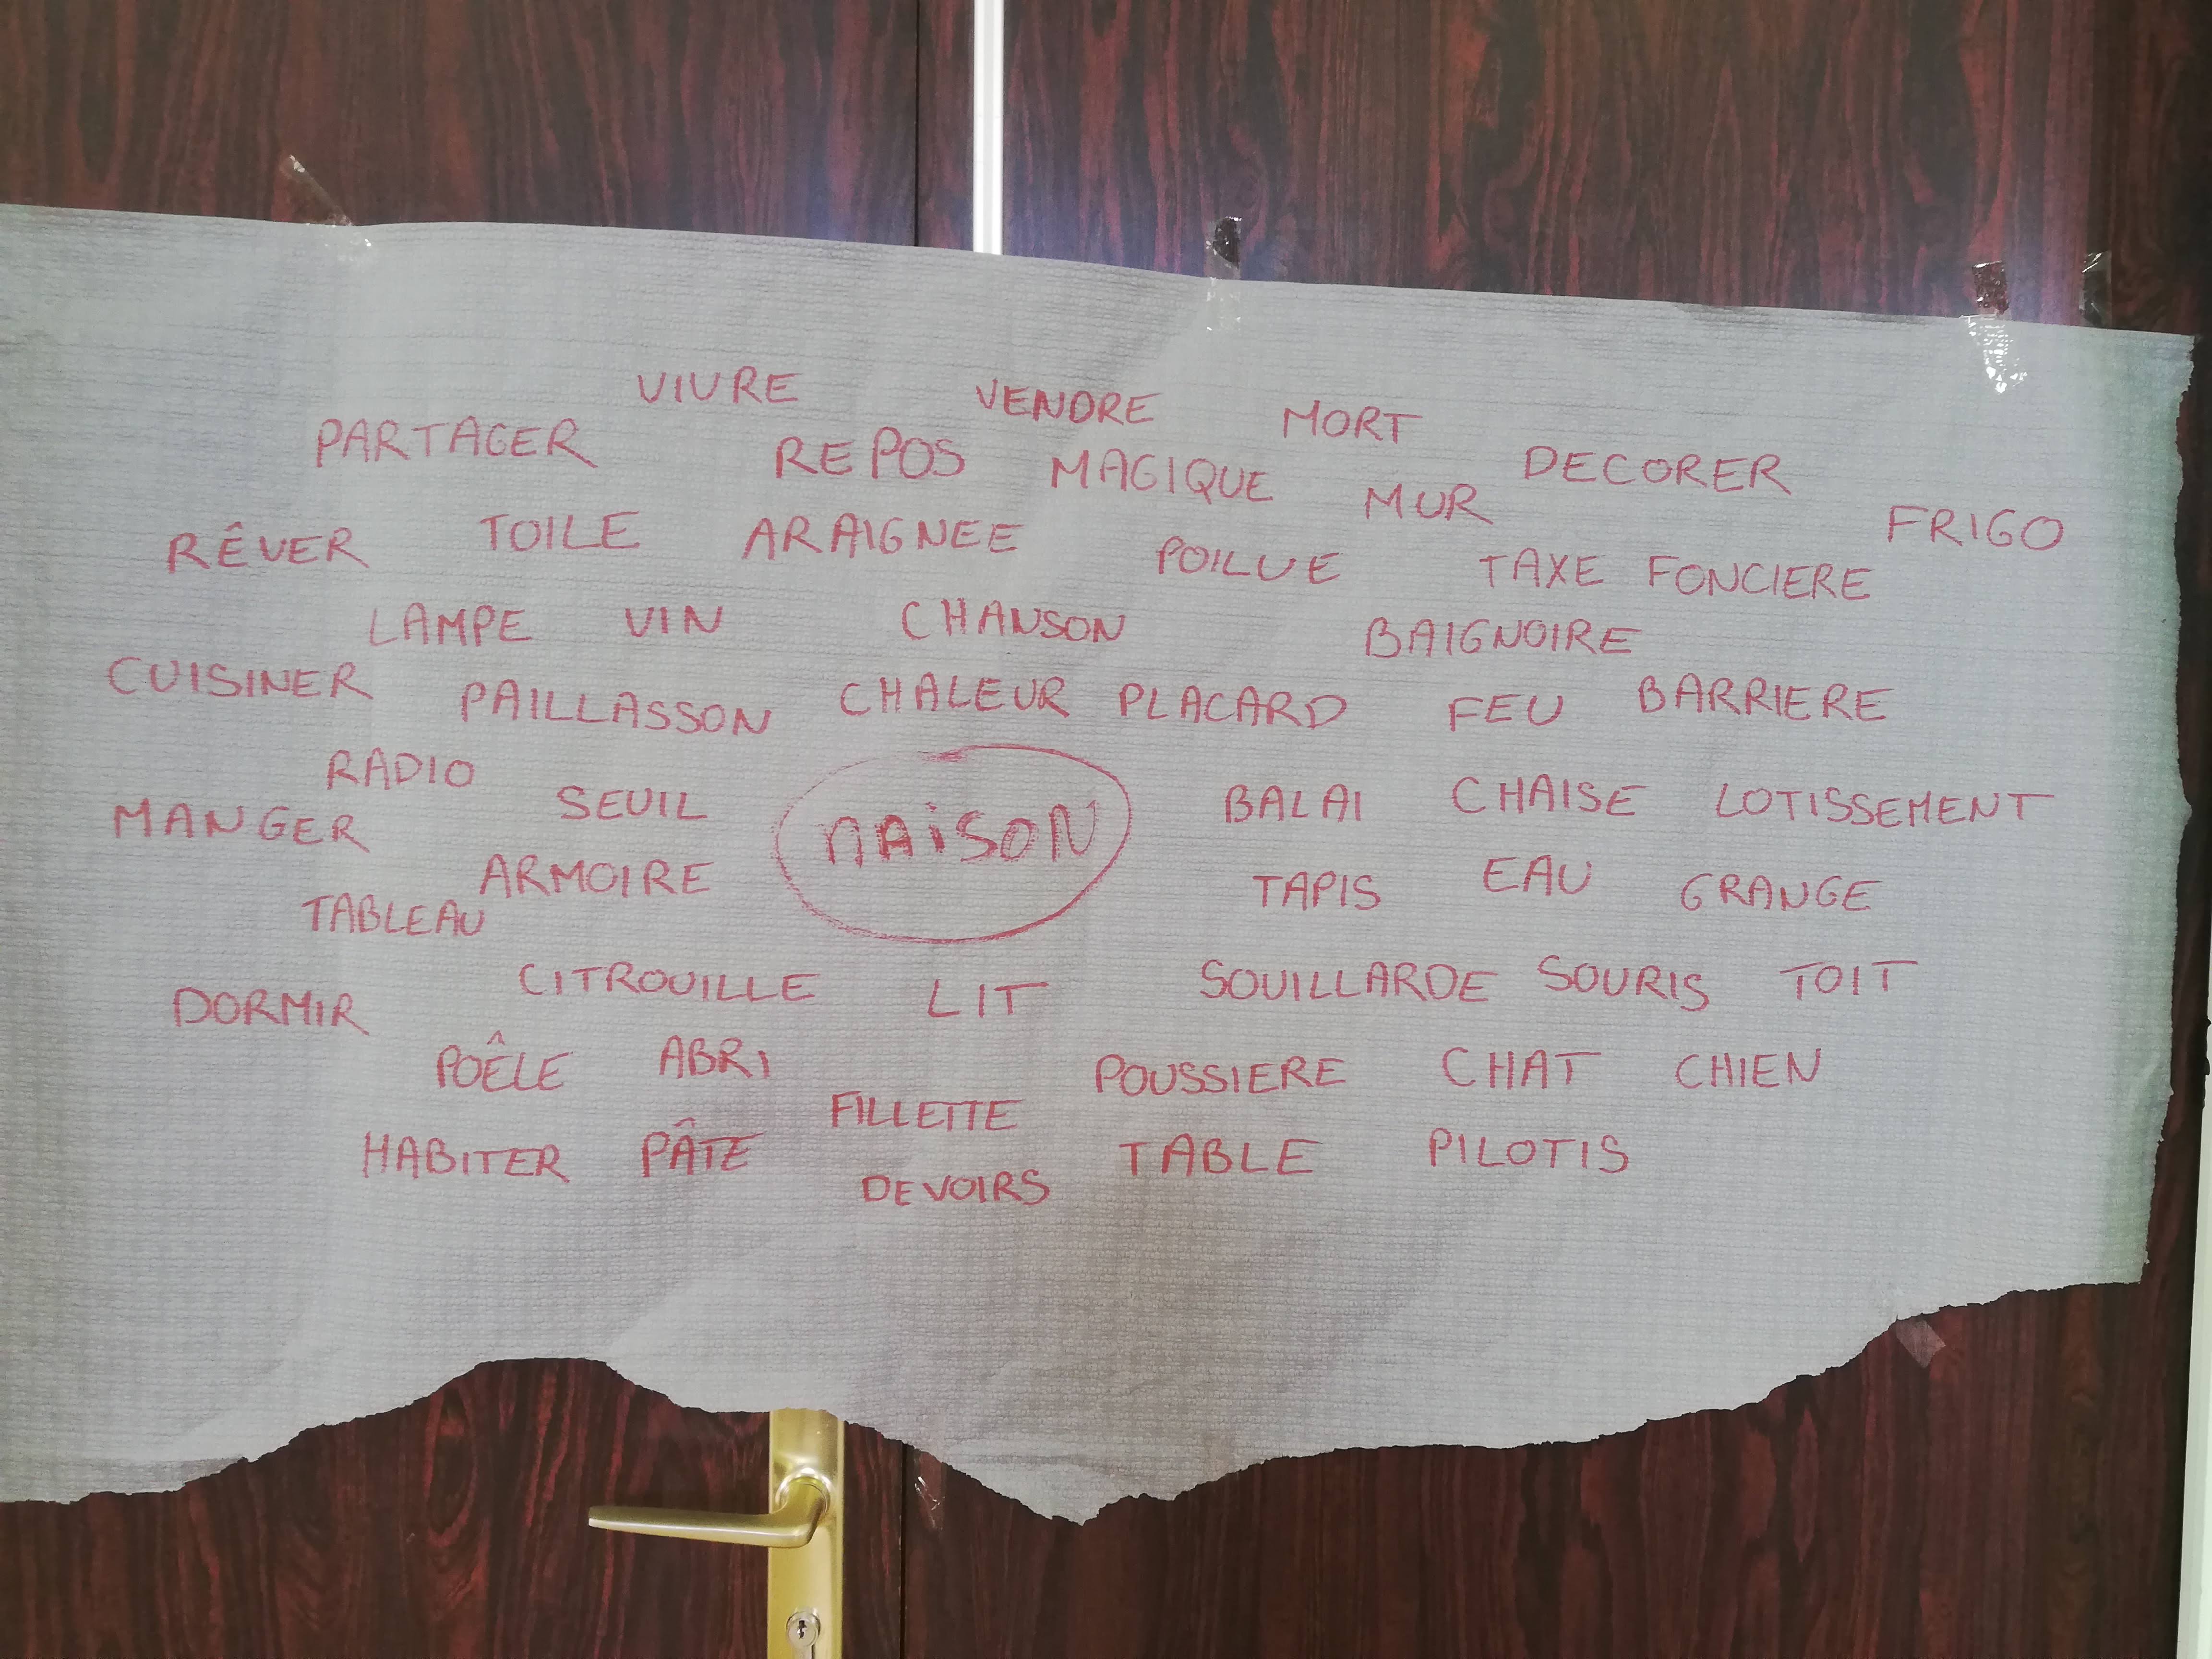 VIVRE VENDRE MORT
PARTAGER REPOS MAGIQUE MUR DECORER
FRIGO
RÊVER TOILE ARAIGNEE POILUE TAXE FONCIERE
LAMPE VIN CHANSON BAIGNOIRE
CUISINER PAILLASSON CHALEUR PLACARD FEU BARRIERE
RADIO SEUIL BALAI CHAISE LOTISSEMENT
MANGER MAiSON
ARMOIRE TAPIS EAU GRANGE
TABLEAU
DORMIR CITROUILLE LIT SOUILLARDE SOURIS TOIT
POÊLE ABRI POUSSIERE CHAT CHIEN
FILLETTE
HABITER PÂTE TABLE PILOTIS
DEVOIRS